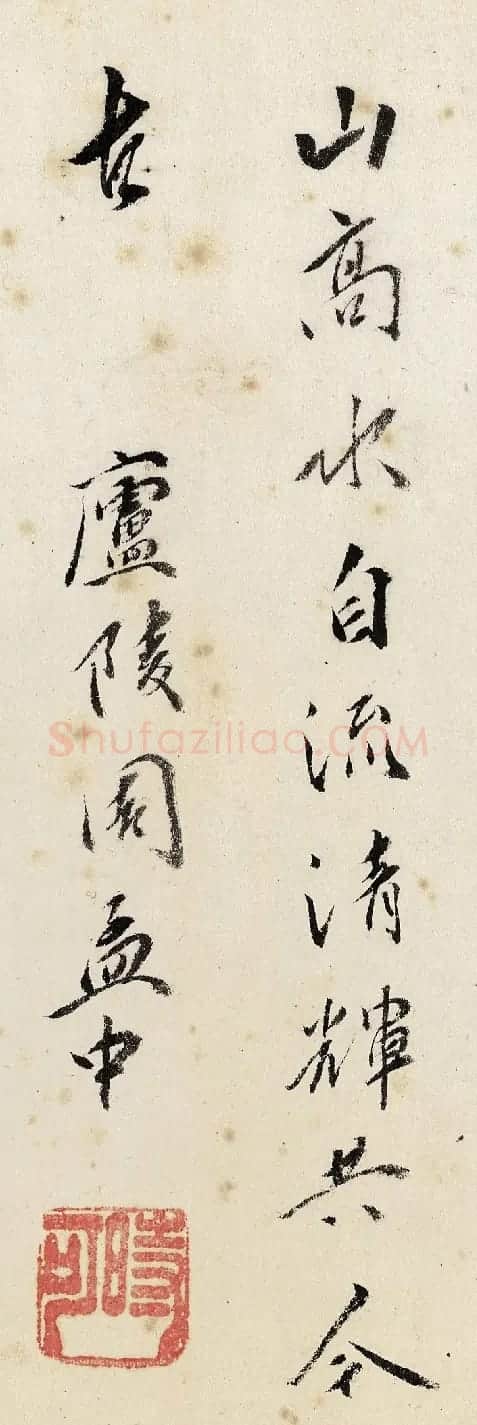 山高水自流清輝共今
古　廬陵周孟中
時可
Shufaziliao.COM